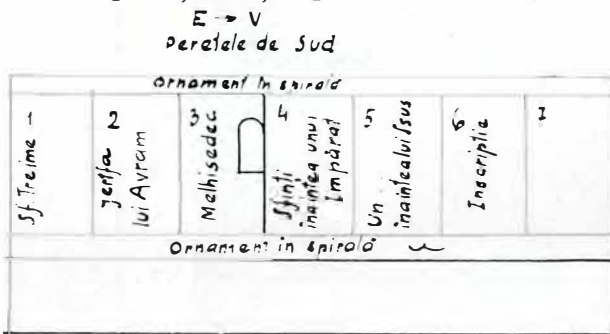 E → V
Peretele de Sud
Ornament în spirală
1
Sf. Treime
2
Jertfa
lui Avram
3
Melhisedec
4
Sfinți
înaintea unui
Împărat
5
Un
înaintea lui Isus
6
Inscripție
7
Ornament în spirală